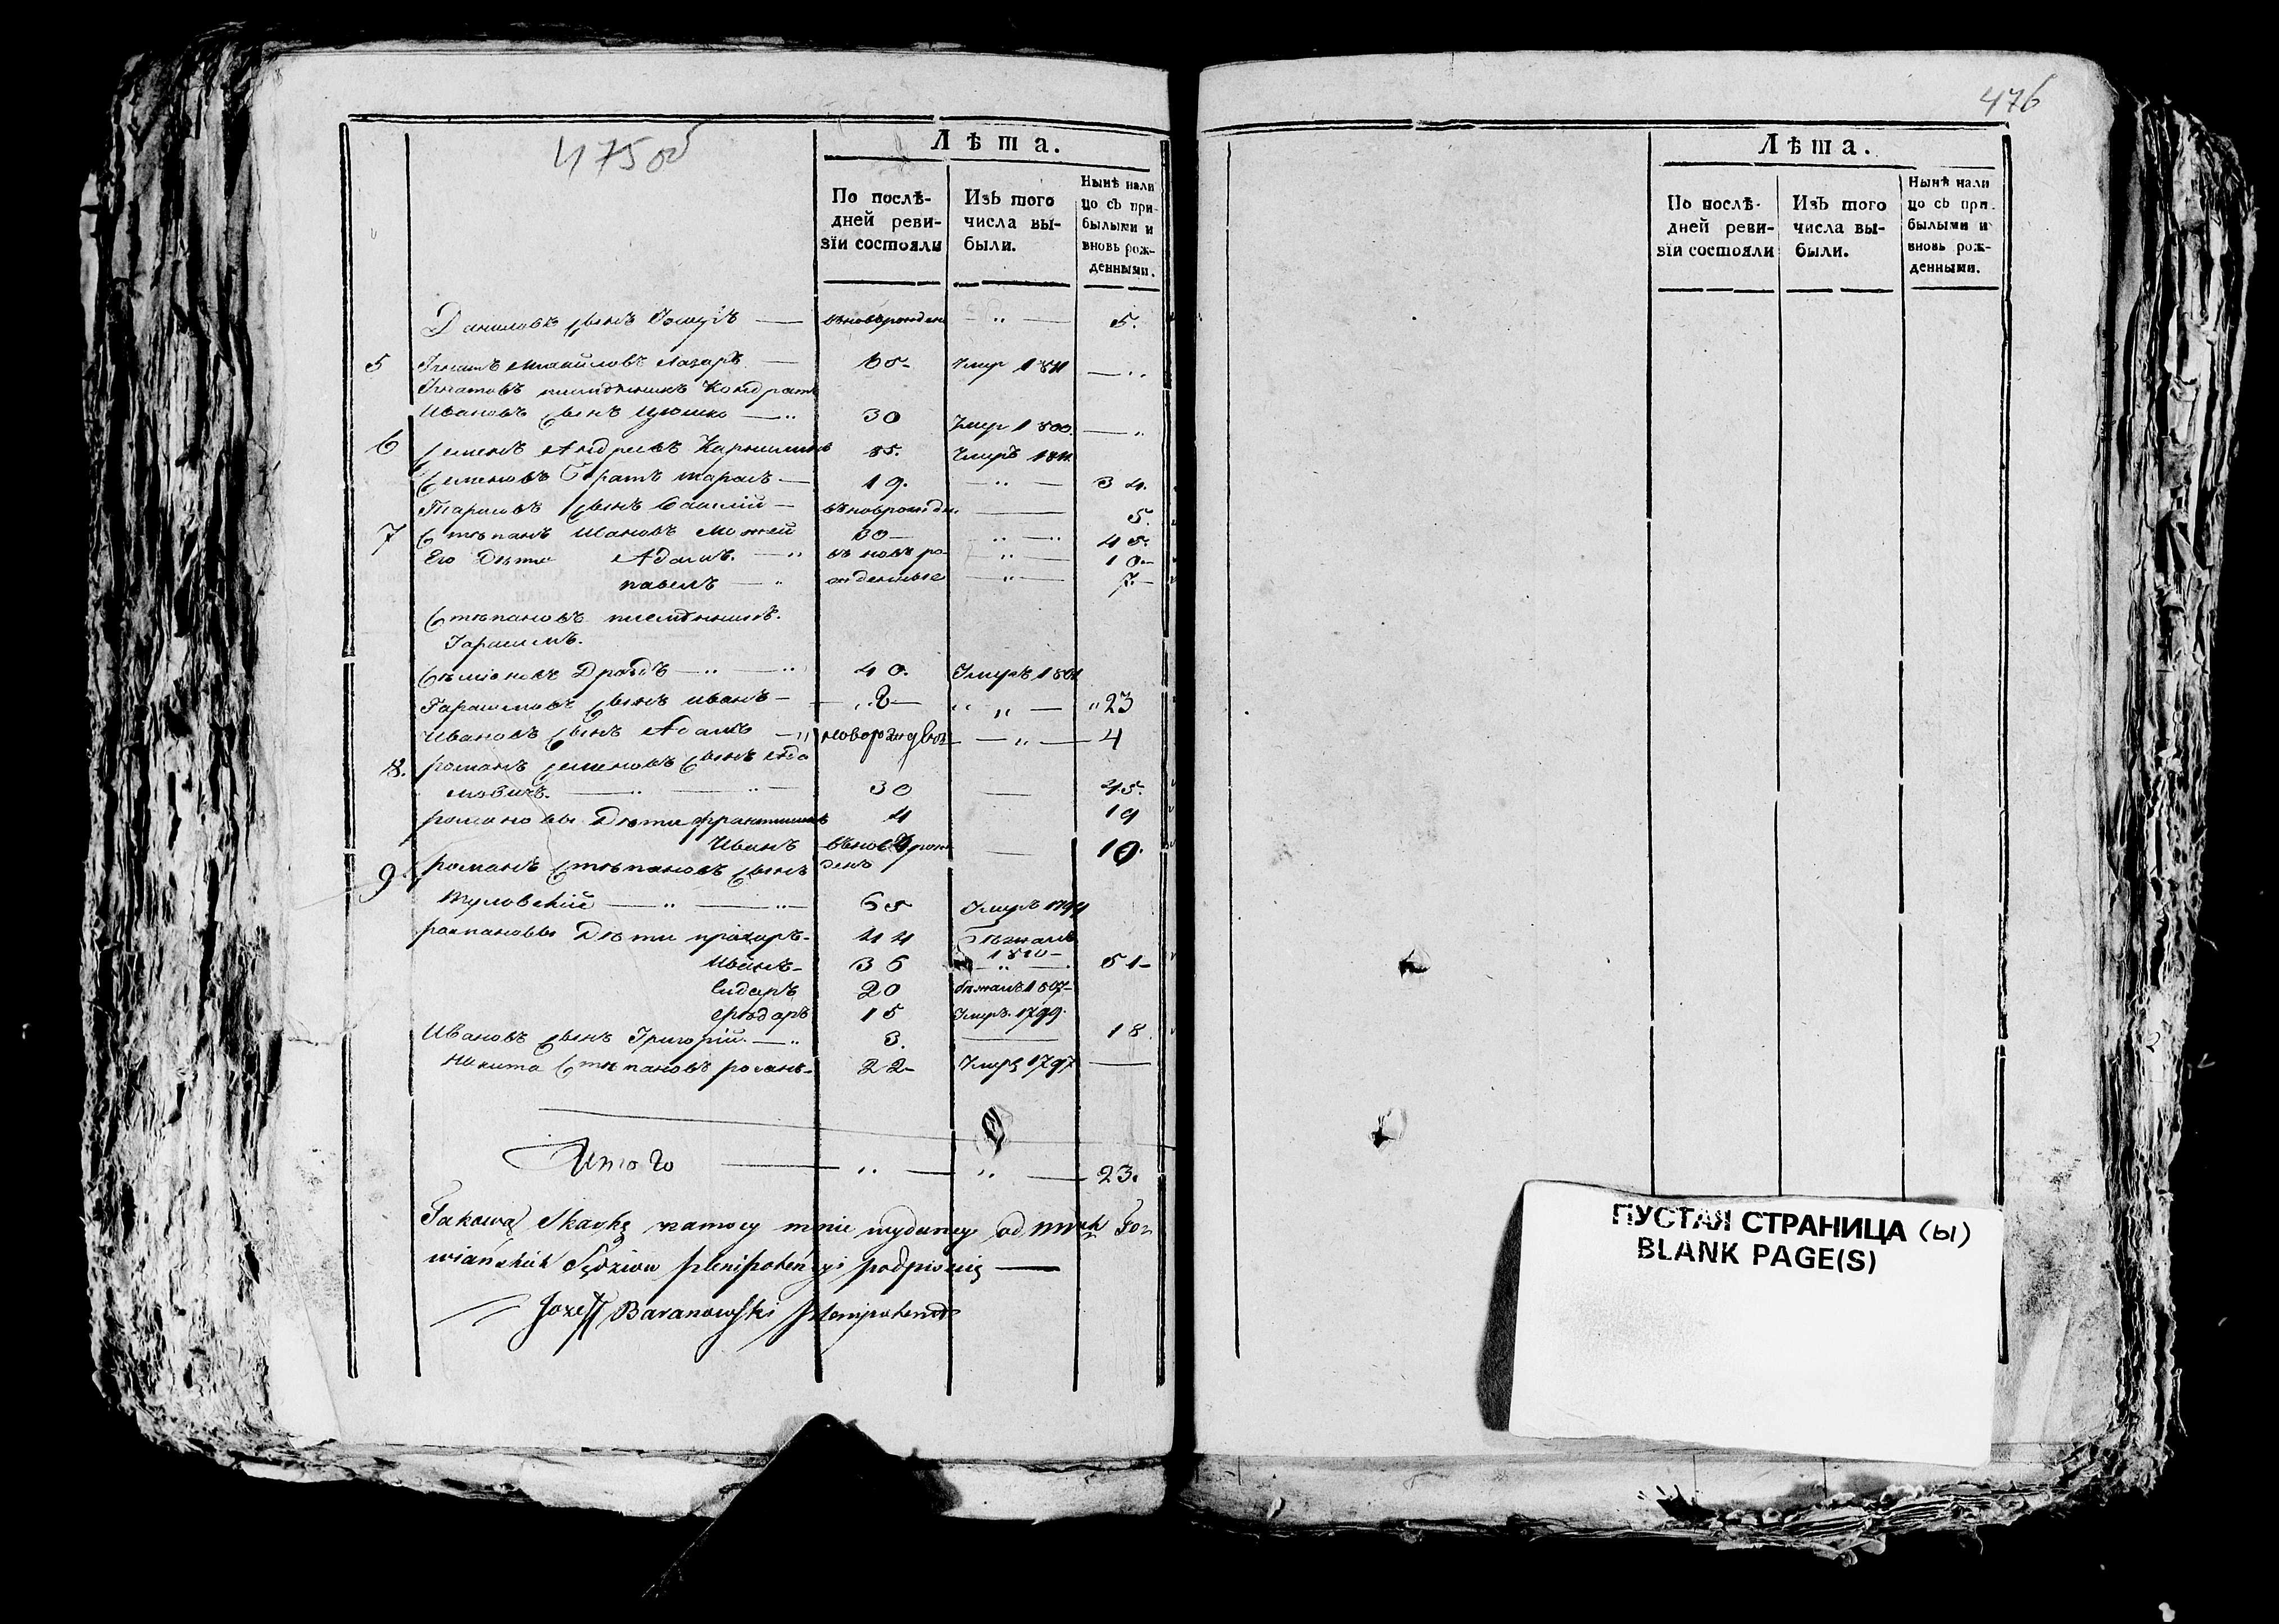 475 об
Лѣта.
По послѣ-
дней реви-
зіи состояли
Изъ того
числа вы-
были.
Нынѣ нали
цо съ при-
былыми и
вновь рож-
денными.
Даниловъ сынъ
5.
5 Михайловъ Лазаръ 65 умер 1811
Игнатовъ племянникъ Кондратъ
Ивановъ сынъ 30 умер 1800.
6 Семенъ Андреевъ 35. умеръ 1811
Семеновъ братъ тарасъ 19. 34.
Тарасовъ сынъ Василій 5.
7 Степанъ Ивановъ 30 45.
Его Дѣти Адамъ. въ новъ ро- 10
павелъ жденные 7.
Степановъ племянникъ.
Гарасимъ.
Дроздъ 40. умеръ
Гарасимовъ сынъ иванъ 8 23
Ивановъ сынъ Адамъ 4
8. романъ семеновъ сынъ Ада
мовичъ. 30 45.
романовы Дѣти 4 19
Иванъ 10.
9. романъ степановъ сынъ денъ
65 умеръ 1794
романовы Дѣти прохоръ 44 бежалъ
1810
Иванъ 36 51
Сидоръ 20 бежалъ 1807
Фѣдоръ 15 умеръ. 1799.
Ивановъ сынъ Григорій. 3. 18
Никита Степановъ 22 умеръ 1797
Итого 23.
Takową Skaykę na mocy mnie wydaney od
Sędziow plenipotencyi podpisuię
Jozeff Baranowski Plenipotent
476
Лѣта.
По послѣ-
дней реви-
зіи состояли
Изъ того
числа вы-
были.
Нынѣ нали
цо съ при-
былыми и
вновь рож-
денными.
ПУСТАЯ СТРАНИЦА (Ы)
BLANK PAGE(S)